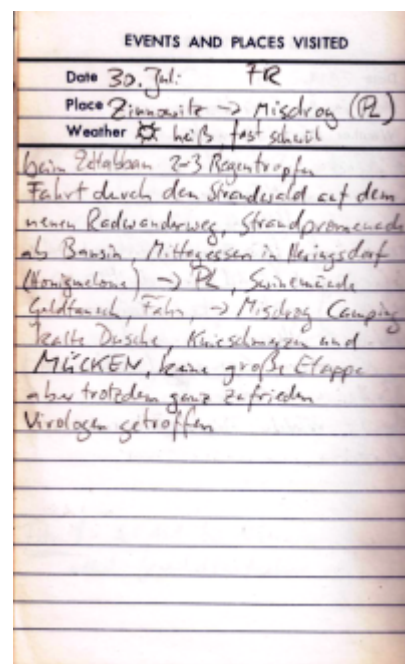 EVENTS AND PLACES VISITED
Date 30. Juli FR
Place Zinnowitz -> Misdroy (PL)
Weather heiß fast schwül
beim Zeltabbau 2-3 Regentropfen
Fahrt durch den Strandwald auf dem
neuen Radwanderweg, Strandpromenade
ab Bansin, Mittagessen in Heringsdorf
(Honigmelone) -> PL, Swinemünde
Geldtausch, Fähre, -> Misdroy Camping
kalte Dusche, Knieschmerzen und
MÜCKEN, keine große Etappe
aber trotzdem ganz zufrieden
Virologen getroffen